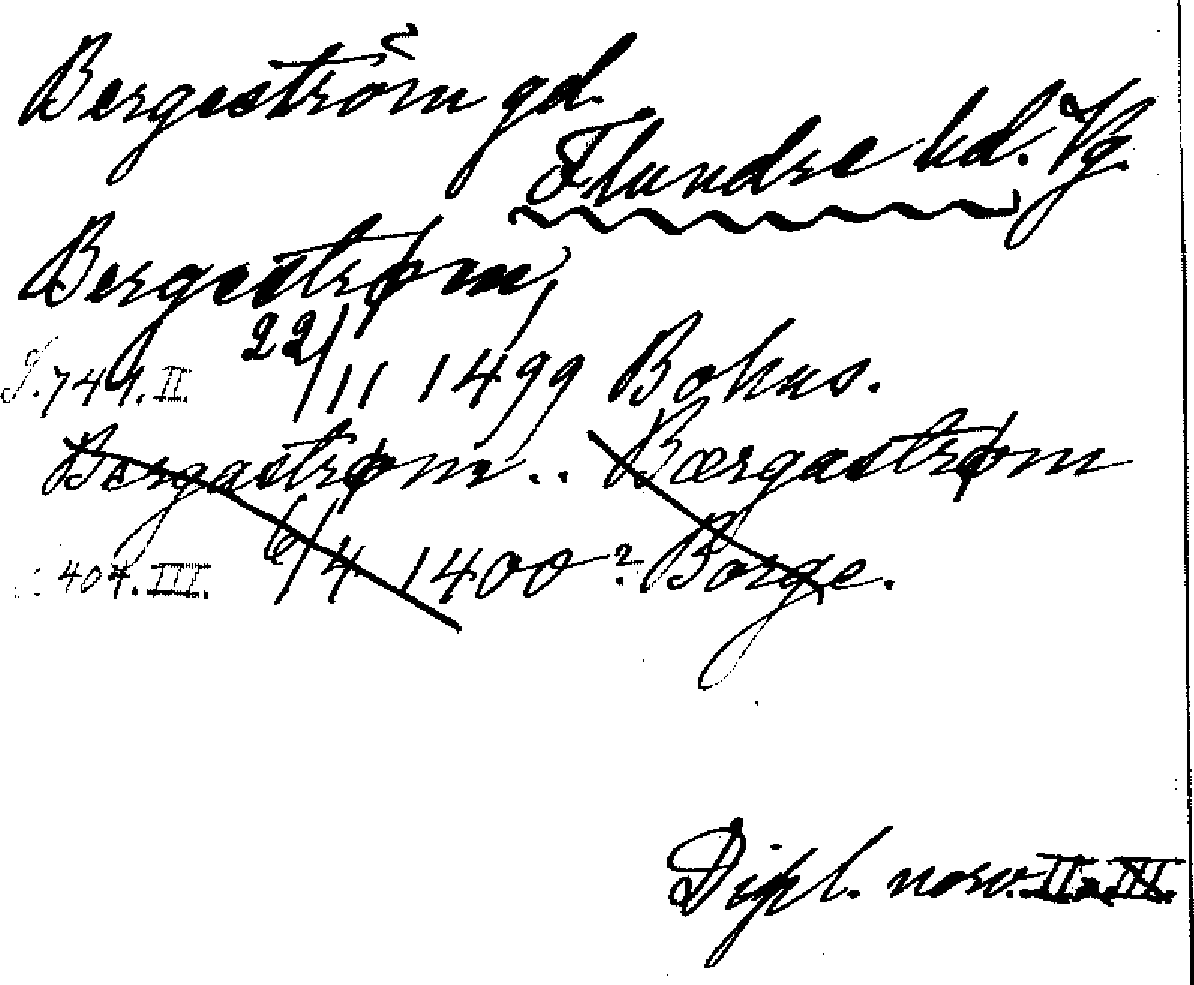 Bergeström gd.
Flundre hd. Vg.
Bergestrøm,
S. 749. II. 22/11 1499 Bohus.
Bergastrøm.. Bærgastrøm
S. 404. III. 6/4 1400 ? Borge.
Dipl. norv. II a. III.